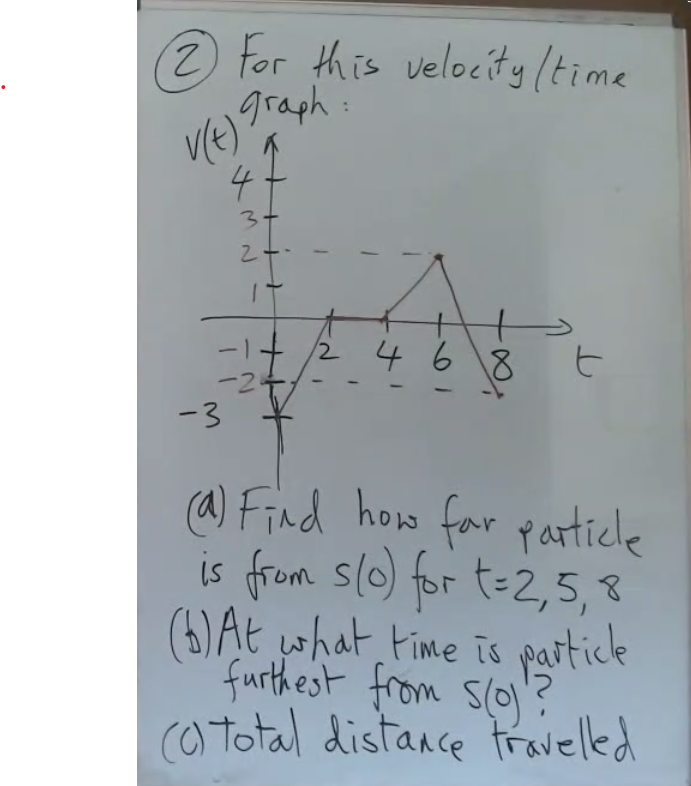 ② For this velocity/time
graph:
v(t)
4
3
2
1
-1 2 4 6 8 t
-2
-3
(a) Find how far particle
is from s(0) for t=2,5,8
(b) At what time is particle
furthest from s(0)?
(c) Total distance travelled